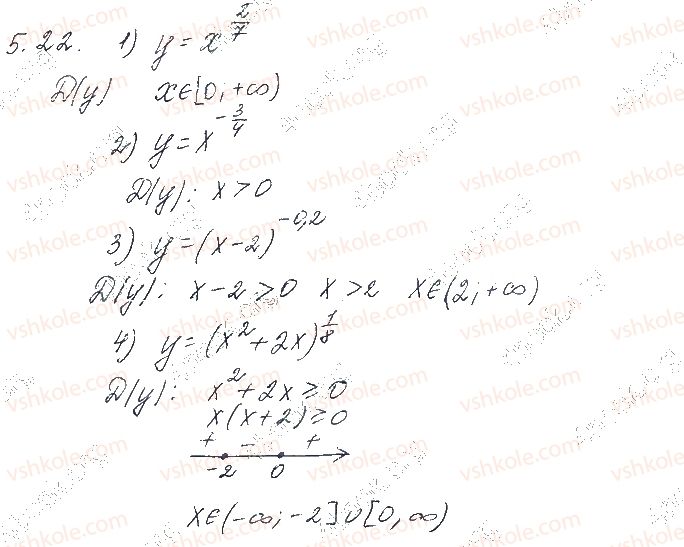 5.22. 1) y = x^{2/7}
D(y) x∈[0; +∞)
2) y = x^{-3/4}
D(y): x > 0
3) y = (x-2)^{-0,2}
D(y): x-2 > 0 x > 2 x∈(2; +∞)
4) y = (x^2 + 2x)^{1/8}
D(y): x^2 + 2x ≥ 0
x(x+2) ≥ 0
+ - +
-2 0
x∈(-∞; -2]∪[0, ∞)